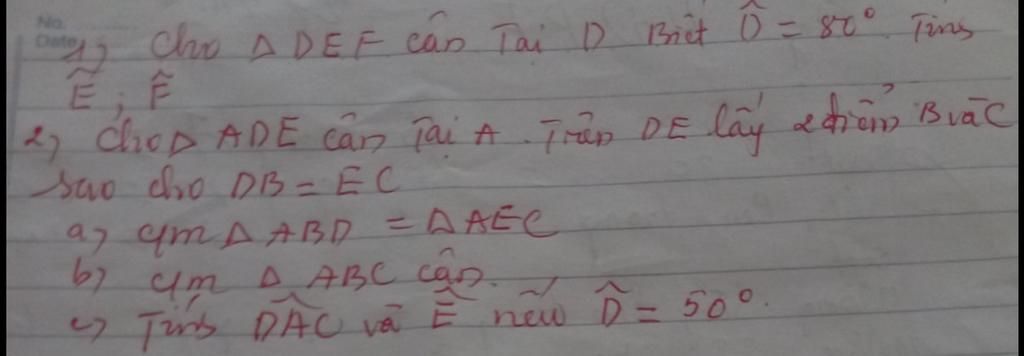 No.
Date
1) Cho Δ DEF cân Tại D Biết D̂ = 80° Tính
Ê ; F̂
2) Cho Δ ADE cân Tại A. Trên DE lấy 2 điểm B và C
sao cho DB = EC
a) CM Δ ABD = Δ AEC
b) CM Δ ABC cân.
c) Tính DAC và Ê nếu D̂ = 50°.